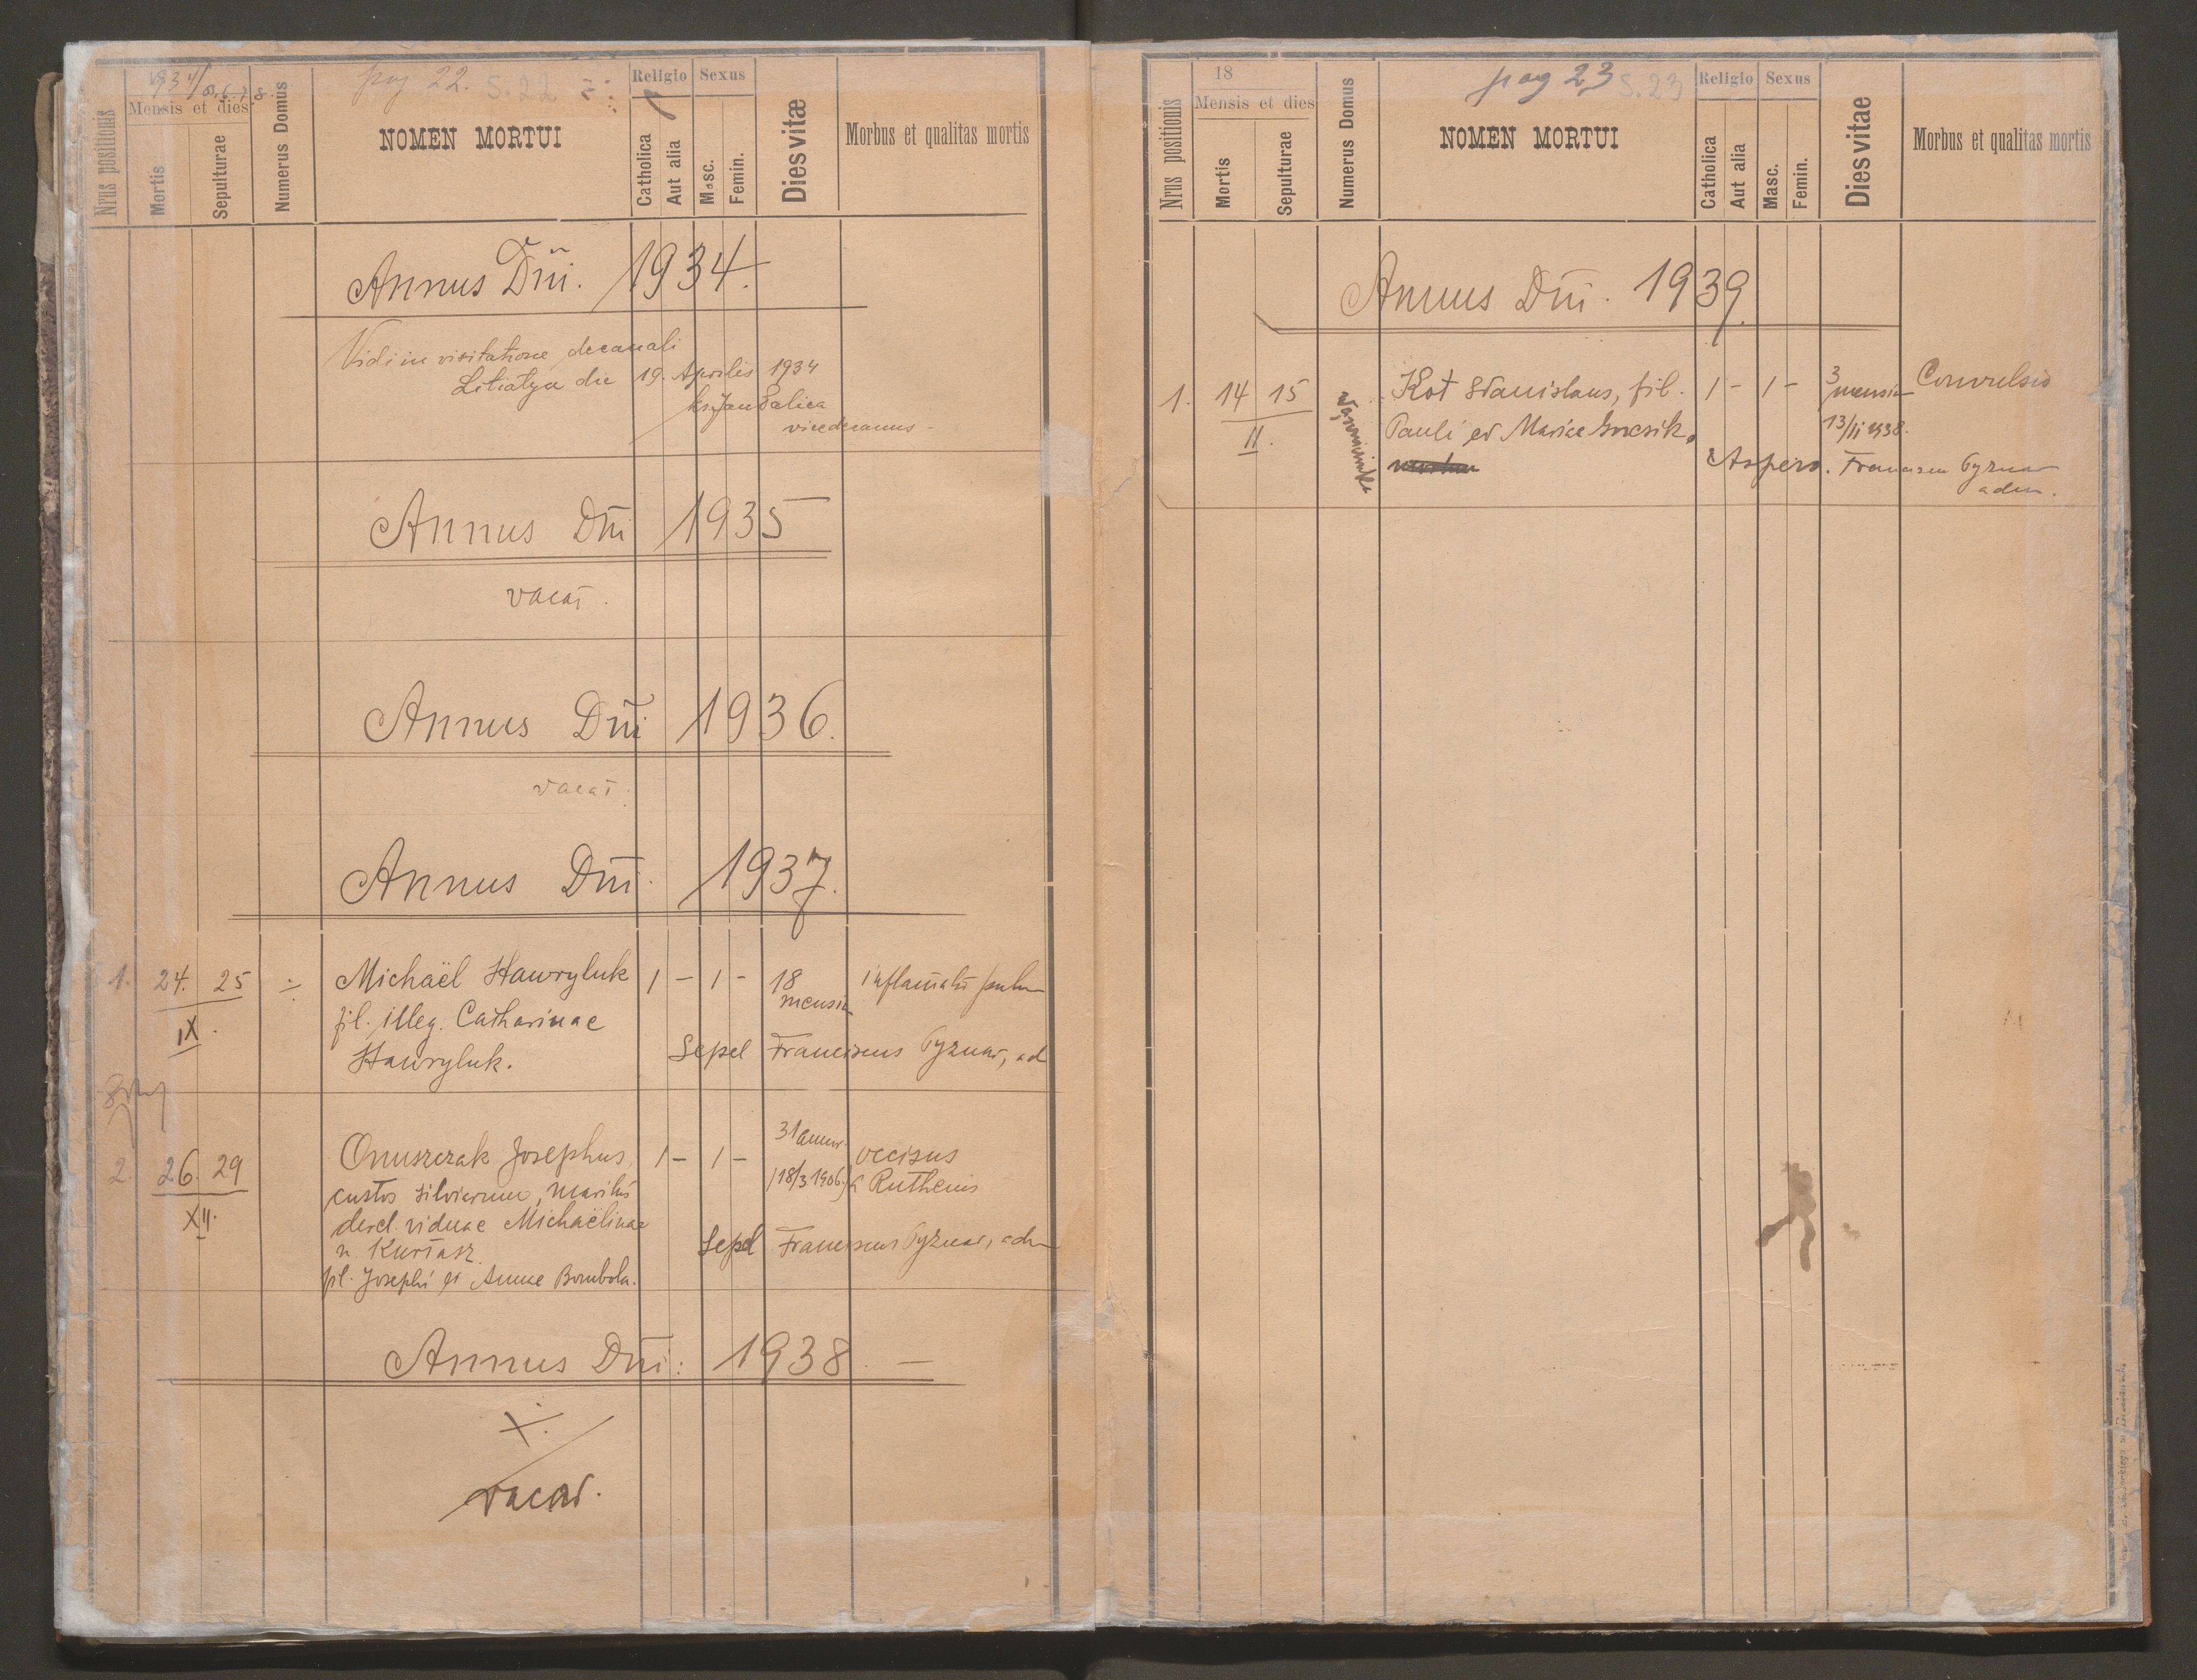 1934/5.6.7.8.
pag 22. S. 22
Nrus positionis
Mensis et dies
Mortis
Sepulturae
Numerus Domus
NOMEN MORTUI
Religio
Catholica
Aut alia
Sexus
Masc.
Femin.
Dies vitæ
Morbus et qualitas mortis
Annus Dñi. 1934.
Vidi in visitatione decanali
Litiatyn die 19. Aprilis 1934
Jan Palica
vicedecanus
Annus Dñi 1935
vacat.
Annus Dñi 1936.
vacat.
Annus Dñi. 1937.
1. 24. 25 Michaël Hawryluk 1 - 1 - 18 inflamatio pulm
IX. fil. illeg. Catharinae mensium
Hawryluk. Sepel Franciscus Pyznar, ad
Onuszczak Josephus, 1 - 1 - 31 annor. occisus
2. 26. 29 custos silvarum, maritus (18/3 1906) a Ruthenis
XII. derel. viduae Michaëlinae
n. Kurtasz. Sepel Franciscus Pyznar, adm
fil. Josephi et Annae Bombola.
Annus Dñi: 1938. —
X.
vacat.
18
pag 23 S. 23
Nrus positionis
Mensis et dies
Mortis
Sepulturae
Numerus Domus
NOMEN MORTUI
Religio
Catholica
Aut alia
Sexus
Masc.
Femin.
Dies vitae
Morbus et qualitas mortis
Annus Dñi. 1939.
1. 14 15 Kot Stanislaus, fil. 1 - 1 - 3 Convulsio
II. Pauli et Mariae mensium
13/11 1938.
Aspers. Franciscus Pyznar
adm.